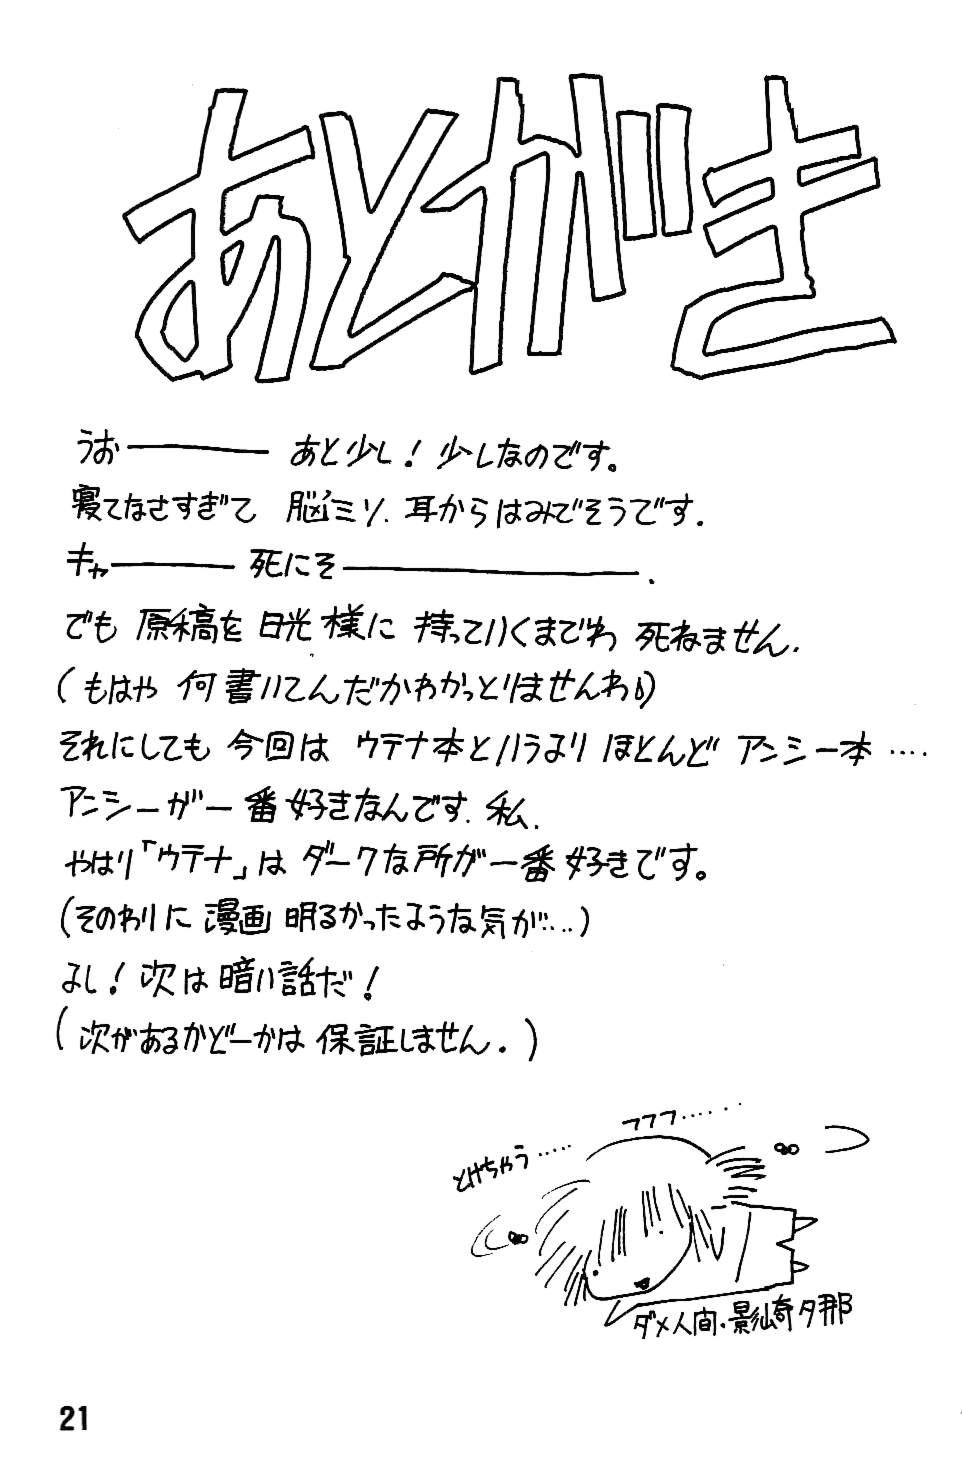 あとがき
うお―――― あと少し! 少しなのです。
寝てなさすぎて 脳ミソ 耳からはみでそうです.
キャ―――― 死にそ――――――――.
でも 原稿を 日光様に 持っていくまでわ 死ねません.
(もはや 何書いてんだかわかっとりませんわ)
それにしても 今回は ウテナ本というより ほとんど アンシー本 ‥‥
アンシーが一番好きなんです. 私.
やはり「ウテナ」は ダークな所が一番好きです。
(そのわりに 漫画 明るかったような気が‥‥)
よし! 次は暗い話だ!
(次があるかどーかは 保証しません.)
フフフ‥‥‥
とけちゃう‥‥‥
ダメ人間・影崎夕那
21